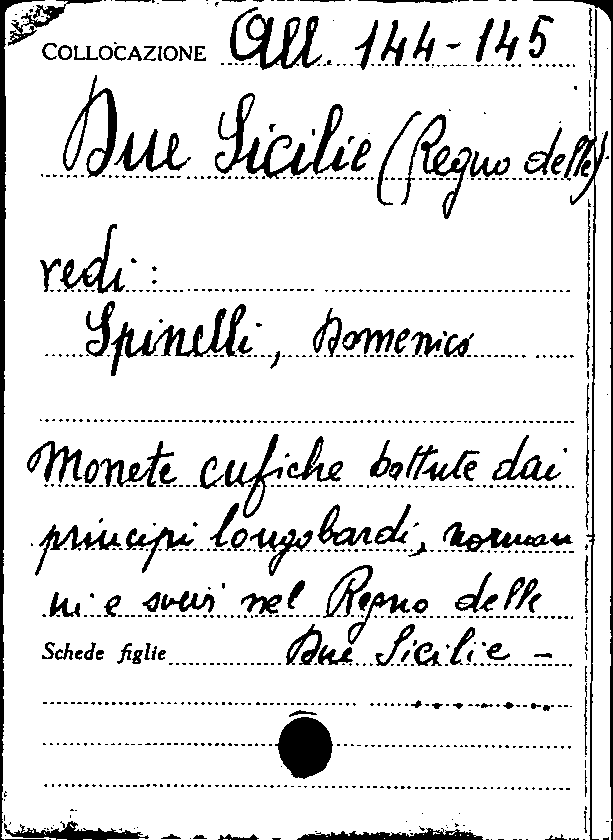 COLLOCAZIONE All. 144-145
Due Sicilie (Regno delle)
vedi :
Spinelli, Domenico
Monete cufiche battute dai
principi longobardi, norman
ni e svevi nel Regno delle
Schede figlie Due Sicilie -